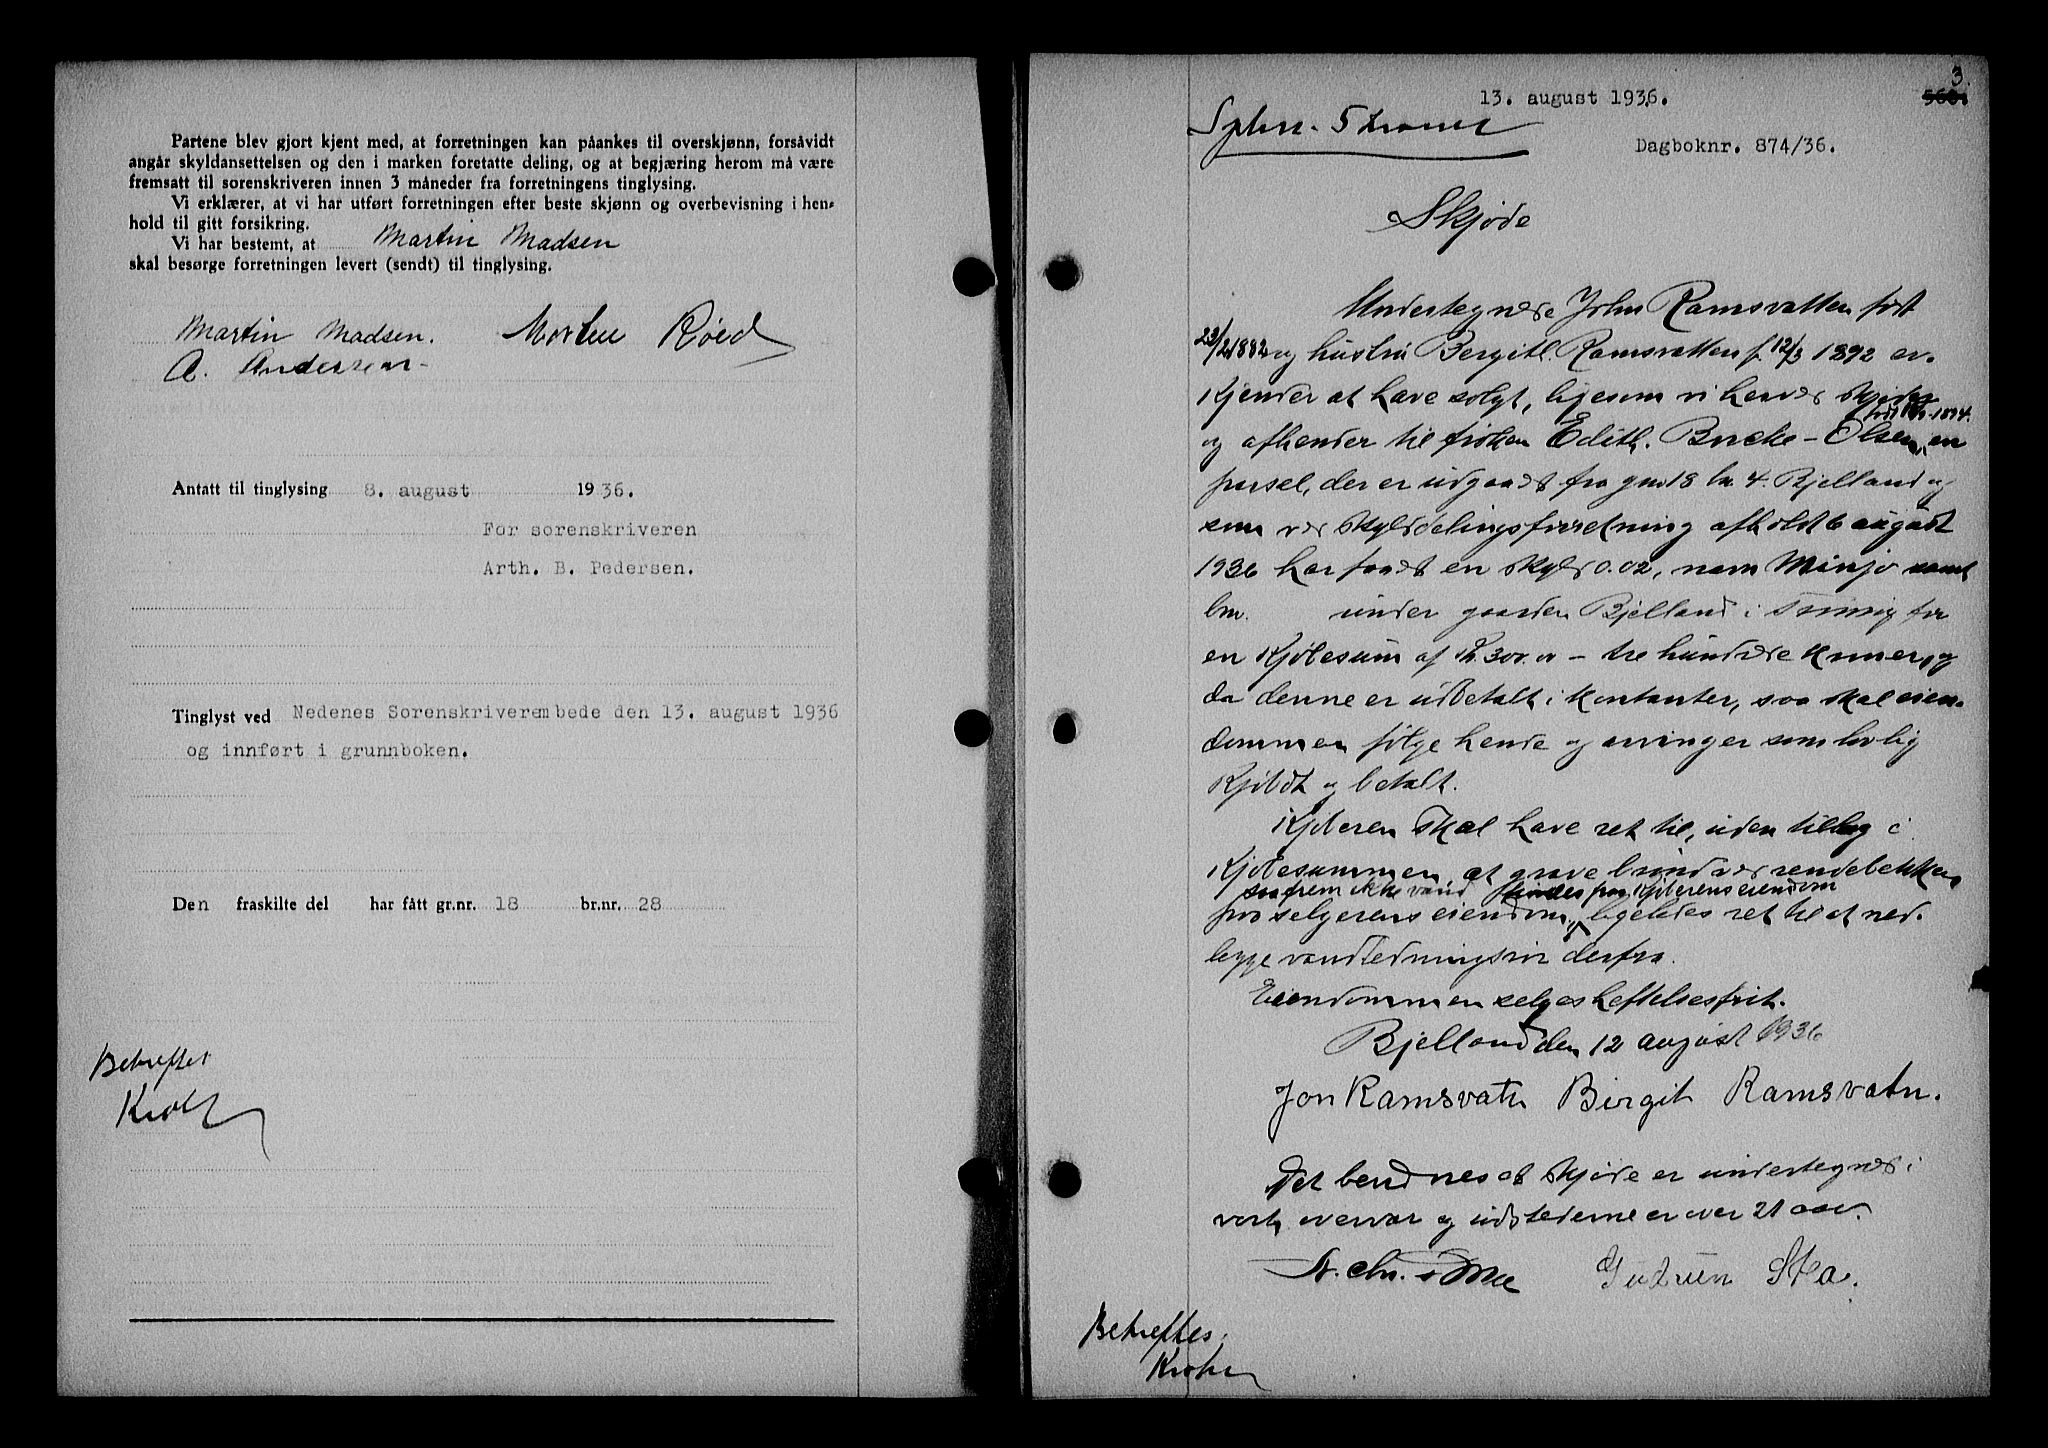 Partene blev gjort kjent med, at forretningen kan påankes til overskjønn, forsåvidt
angår skyldansettelsen og den i marken foretatte deling, og at begjæring herom må være
fremsatt til sorenskriveren innen 3 måneder fra forretningens tinglysing.
Vi erklærer, at vi har utført forretningen efter beste skjønn og overbevisning i hen-
hold til gitt forsikring.
Vi har bestemt, at Martin Madsen
skal besørge forretningen levert (sendt) til tinglysing.
Martin Madsen. Morten Røed
A. Andersen
Antatt til tinglysing 8. august 1936.
For sorenskriveren
Arth. B. Pedersen.
Tinglyst ved Nedenes Sorenskriverembede den 13. august 1936
og innført i grunnboken.
Den fraskilte del har fått gr.nr. 18 br.nr. 28
Betreftet
3.
560.
13. august 1936.
Dagboknr. 874/36.
Skjøde
Undertegnede John Ramsvatten født
23/2 1882 og hustru Bergit Ramsvatten f. 12/3 1892 er-
kjender at have solgt, ligesom vi herved skjøder
født 1894.
og afhender til frøken Edith Olsen, en
parsel, der er udgaadt fra gno 18 bn. 4. Bjelland og
som ved skylddelingsforretning afholdt 6 august
1936 har faadt en skyld 0.02, navn Minjo samt
bn. under gaarden Bjelland i for
en kjøbesum af Kr. 300.00 – tre hundrede kroner, og
da denne er udbetalt i kontanter, saa skal eien-
dommen følge hende og arvinger som lovlig
kjøbdt og betalt.
Kjøberen skal have ret til, uden tillæg i
kjøbesummen, at grave brønd ved rendebekken
saafremt ikke vand findes paa kjøberens eiendom
paa selgerens eiendom, ligeledes ret til at ned-
legge vandledningsrør derfra.
Eiendommen selges heftelsesfrit.
Bjelland den 12 august 1936
Jon Ramsvatn Birgit Ramsvatn.
Det bevidnes at skjøde er undertegnet i
vort overvær og udstederne er over 21 aar.
Gudrun
Betreftes
Krohn